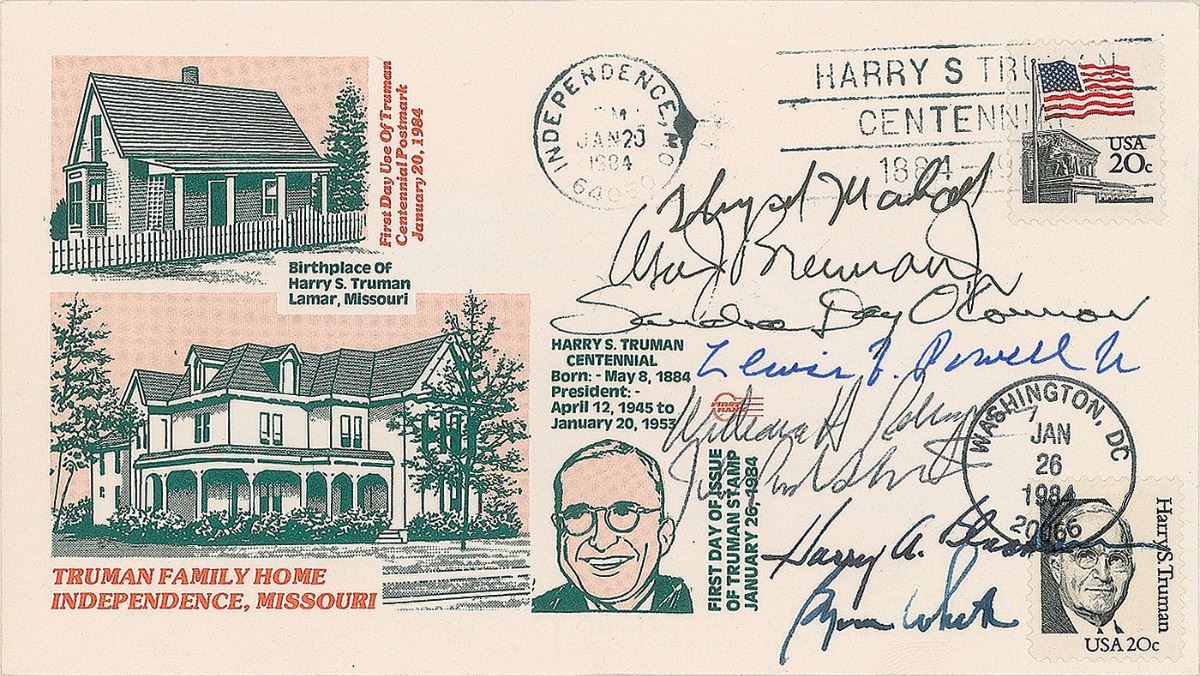 First Day Use Of Truman
Centennial Postmark
January 20, 1984
Birthplace Of
Harry S. Truman
Lamar, Missouri
TRUMAN FAMILY HOME
INDEPENDENCE, MISSOURI
INDEPENDENCE, MO
JAN 20
1984
HARRY S TRUMAN
CENTENNIAL
1884 - 19
USA
20c
Thurgood Marshall
Wm J. Brennan, Jr
Sandra Day O'Connor
Lewis F. Powell Jr
William H. Rehnquist
John Paul Stevens
Harry A. Blackmun
Byron White
HARRY S. TRUMAN
CENTENNIAL
Born: - May 8, 1884
President: -
April 12, 1945 to
January 20, 1953
FIRST
RANK
FIRST DAY OF ISSUE
OF TRUMAN STAMP
JANUARY 26, 1984
WASHINGTON, DC
JAN
26
1984
20066
Harry S. Truman
USA 20c